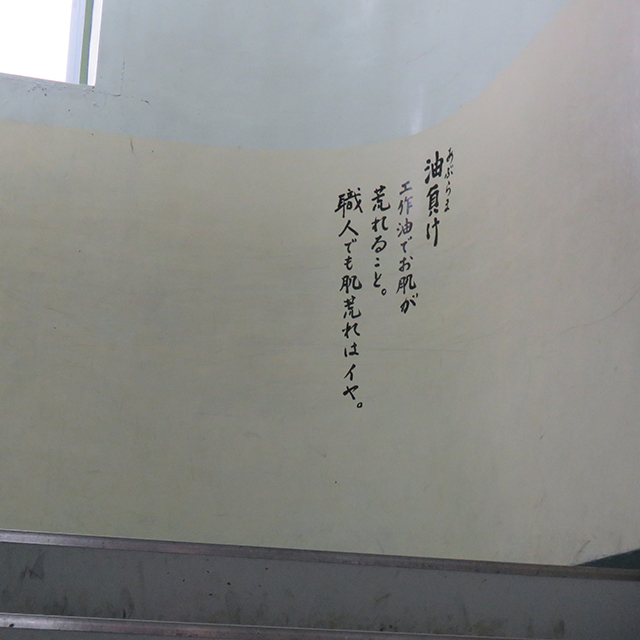 あぶらま
油負け
工作油でお肌が
荒れること。
職人でも肌荒れはイヤ。